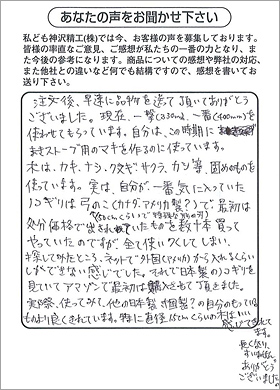 あなたの声をお聞かせ下さい
私ども神沢精工(株)では今、お客様の声を募集しております。
皆様の率直なご意見、ご感想が私たちの一番の力となり、ま
た今後の参考になります。商品についての感想や弊社の対応、
また他社との違いなど何でも結構ですので、感想を書いてお
送り下さい。
注文後、早速に品物を送って頂いてありがとう
ございました。現在、一撃(330㎜)、一番(400㎜)を
使わせてもらっています。自分は、この時期に
まきストーブ用のマキを作るのに使っています。
木は、カキ、ナシ、クヌギ、サクラ、カシ等、固めのものを
使っています。実は、自分が、一番気に入っていた
ノコギリは弓のこ(カナダ、アメリカ製?)で最初は
処分価格で出されていたものを数十本買って
やっていたのですが、全て使いつくしてしまい、
探してみたところ、ネットで外国(アメリカ)から入れるくらい
しかできない感じでした。それで日本製のノコギリを
見ていてアマゾンで最初は購入させて頂きました。
実際、使ってみて、他の日本製、中国製?の自分のもっている
ものより良くきれています。特に直径 くらいの木は
感じできれて
ます。
長く使り、
すいません。
ありがとう
ございました